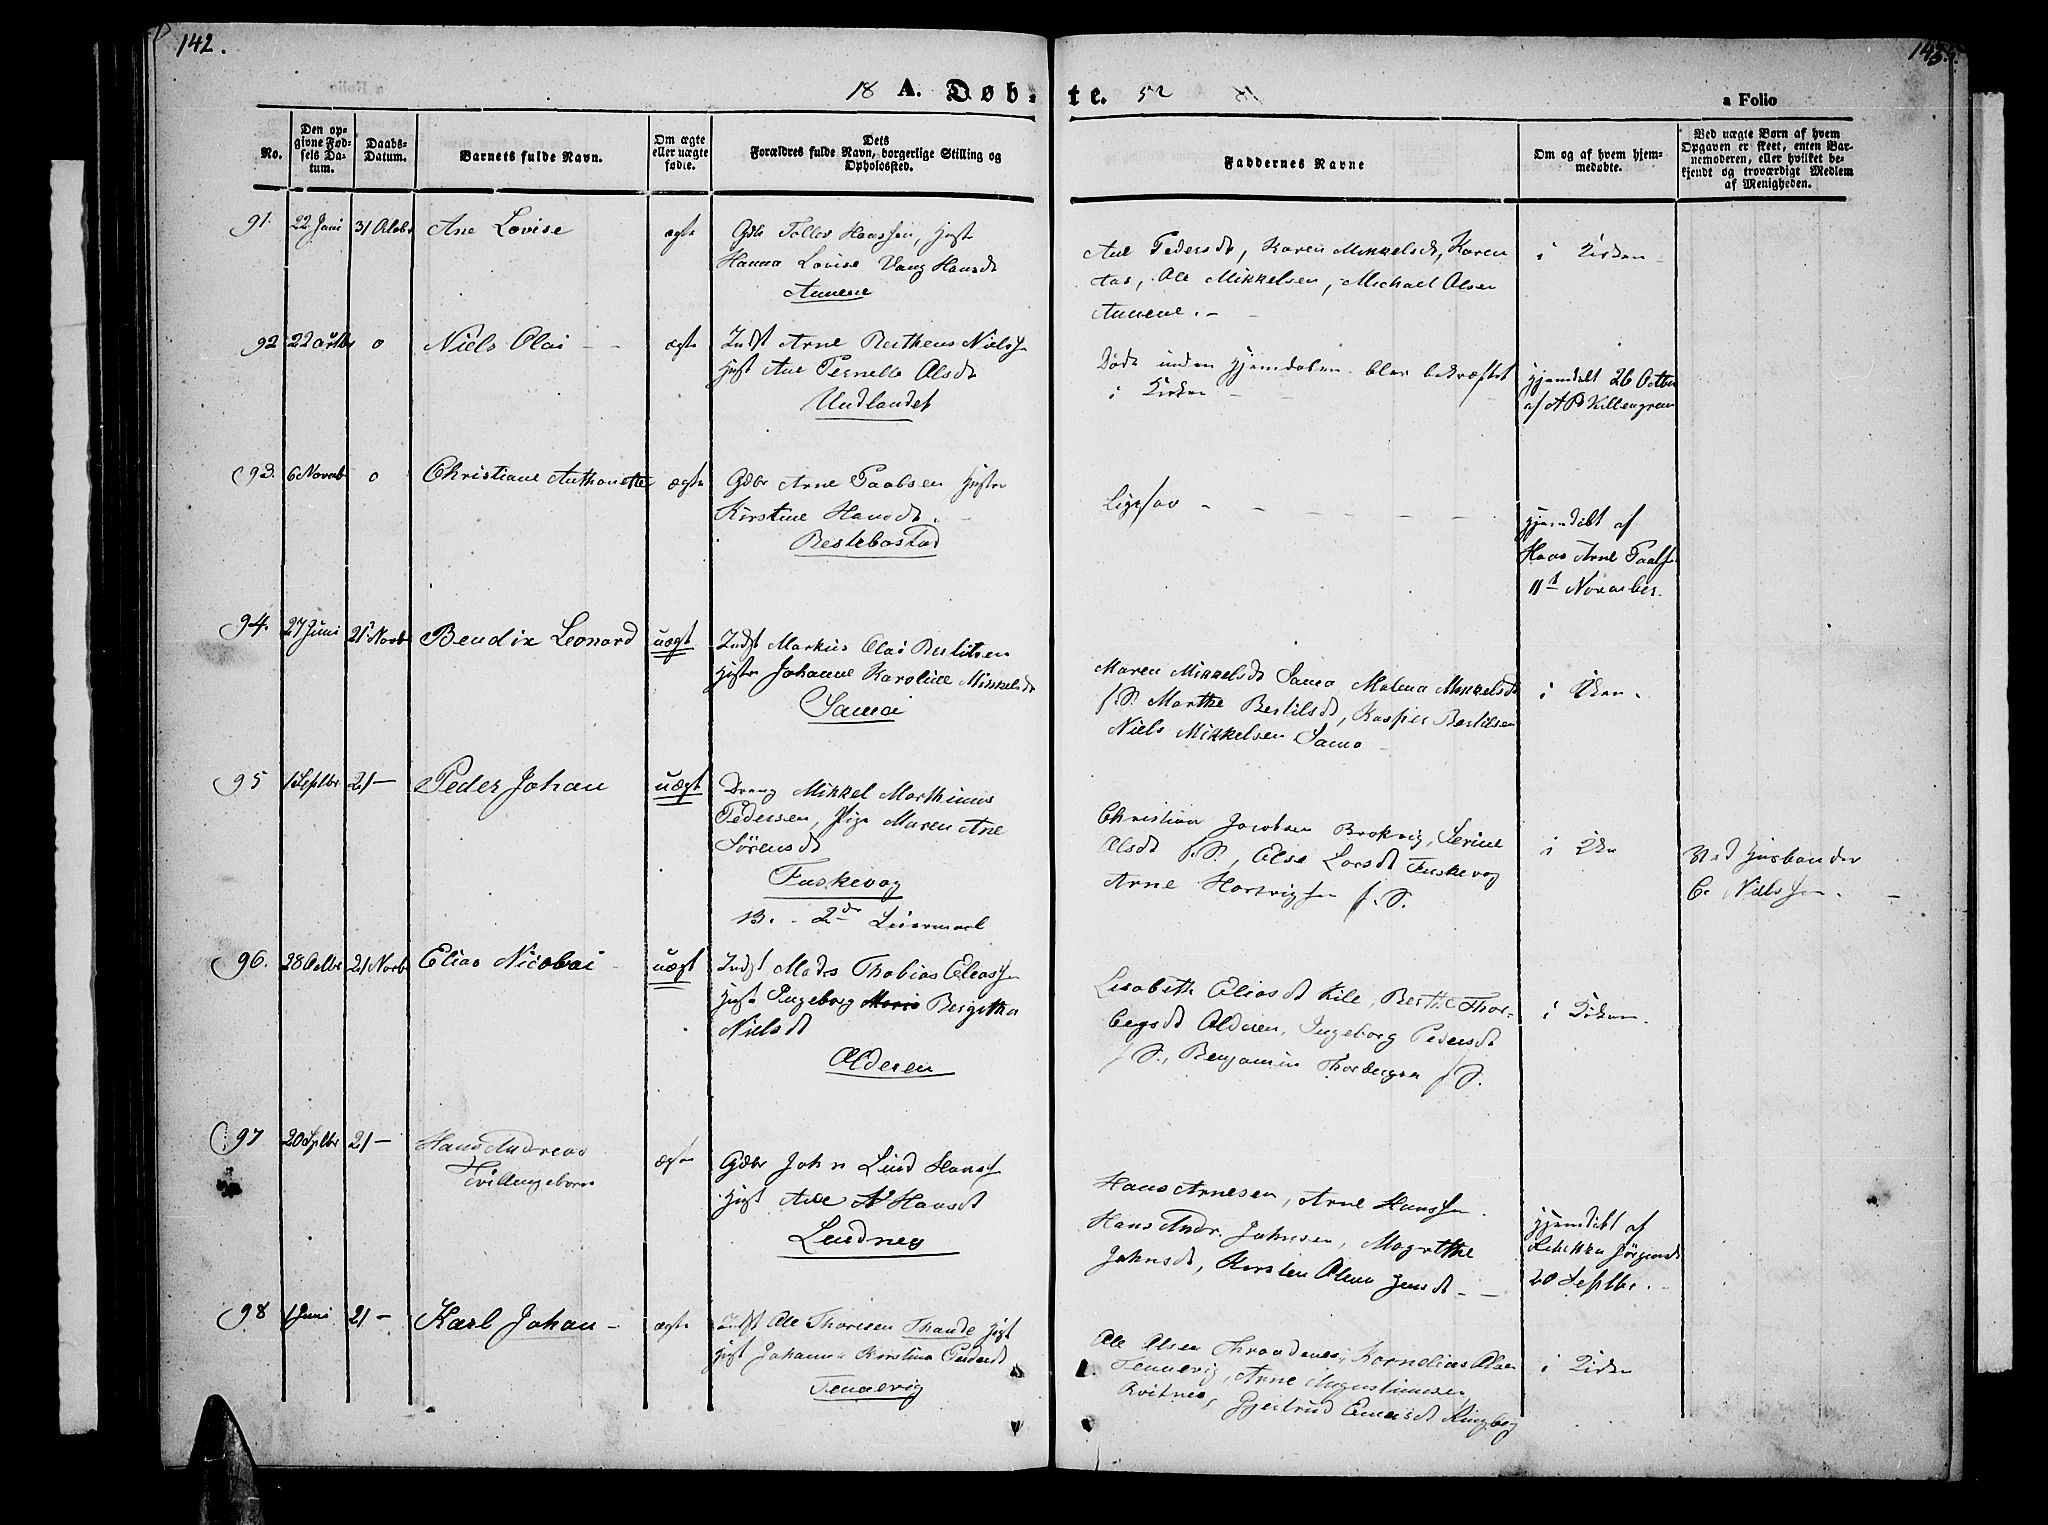 142.
143.
18 A. Døb-te. 52
a Folio
No.
Den op-
givne Fød-
sels Da-
tum.
Daabs-
Datum.
Barnets fulde Navn.
Om ægte
eller uægte
fødte.
Dets
Forældres fulde Navn, borgerlige Stilling og
Opholdssted.
Faddernes Navne
Om og af hvem hjem-
medøbte.
Ved uægte Børn af hvem
Opgaven er skeet, enten Bar-
nemoderen, eller hvilket be-
kjendt og troværdigt Medlem
af Menigheden.
91. 22 Juni 31 Octbr Ane Lovise ægte
Gdbr Tollev Hanssen, Hust
Hanna Lovise Vang Hansdt
Annene
Ane Pedersdt, Karen Mikkelsdt, Karen
Aas, Ole Mikkelsen, Michael Olsen
Annene. -
i Kirken -
92 22 Octbr o Niels Olai - - ægte
Indst Arne Bertheus Nielss
Hust Ane Pernelle Olsdt
Undlandet
Døde inden Hjemdaben blev bekræftet
i Kirken - -
hjemdøbt 26 Octbr
af A P Killengreen
93. 6 Novb o Christiane Anthonette ægte
Gdbr Arne Paalsen Hustr
Kirstine Hansdt. -
Beslebostad
Ligesaa - - - - - -
hjemdøbt af
Hans Arne Paals
11t November.
94. 27 Juni 21 Novb Bendix Leonard uægt
Indst Markus Olai Bertilsen
Hustr Johanne Karoline Mikkelsdt
Sama
Maren Mikkelsdt Sama Malena Mikkelsdt
f. S. Marthe Bertilsdt, Kasper Bertilsen
Niels Mikkelsen Sama -
i Kken -
95 1 Septbr 21 - Peder Johan uægt
Dreng Mikkel Marthinus
Pedersen, Pige Maren Ane
Sörensdt
Finskevog
B. - 2de Leiermaal
Christian Jacobsen Brokvig, Serine
Olsdt f. S., Else Larsdt Finskevog
Arne Hartvigsen f. S.
i Kken
Ved Husbonden
C. Nielssen. -
96. 28 Octbr 21 Novb Elias Nicolai - uægt
Indst Mads Thobias Eliass
Hust Ingeborg Maria Bergitha
Nielsdt
Olderen
Lisabeth Eliasdt Kile, Berthe Thor-
bergsdt Olderen, Ingeborg Pedersdt
f S., Benjamin Thorbergsen f S.
i Kirken -
97 20 Septbr 21 - Hans Andreas
Tvillingeborn
ægte
Gdbr John Lind Hanss
Hust Ane A Hansdt
Lindnes
Hans Arnesen, Arne Hanssen
Hans Andr. Johnsen, Magrethe
Johnsdt, Kirsten Olena Jensdt - -
hjemdøbt af
Rebekka Jörgensdt
20 Septbr. -
98 1 Juni 21 - Karl Johan - ægte
Indst Ole Thoresen Thande Hust
Hust Johanna Kirstina Pedersdt
Tennevig
Ole Olsen Throndenes, Kornelius Olsen
Tennevig, Arne Augustinusen
Kvitnes, Gjertrud Enersdt Ringberg
i Kirken